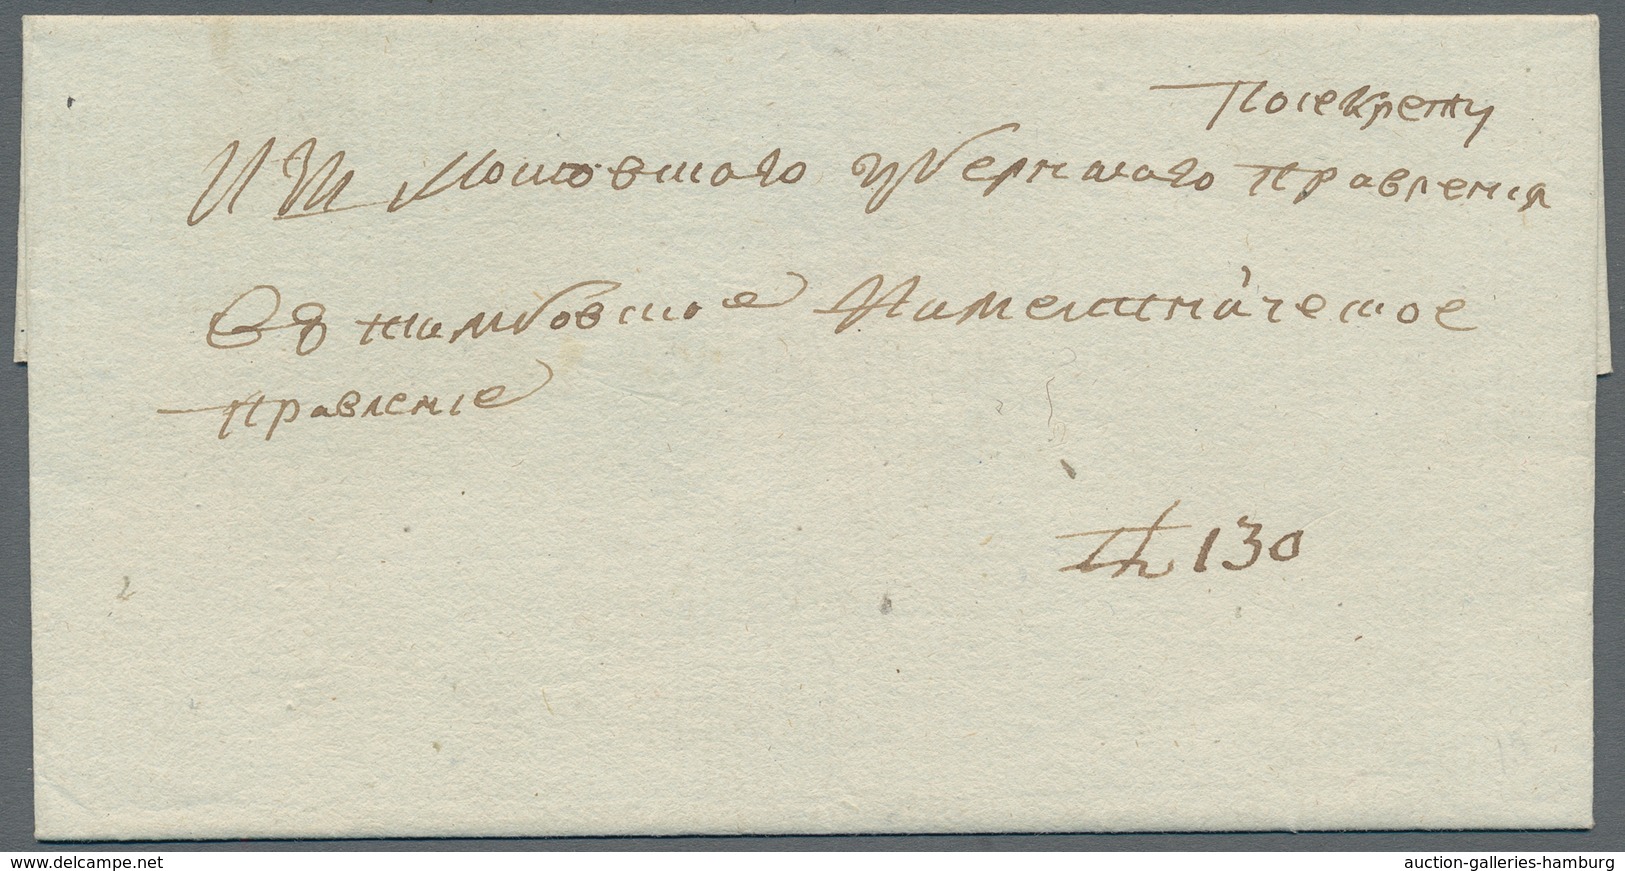 По секрету
Изъ Московскаго губернскаго правления
Въ тамбовское Наместническое
правление
№ 130
www.delcampe.net
auction-galleries-hamburg